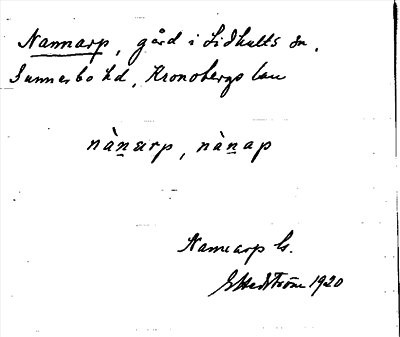 Nannarp, gård i Lidhults sn,
Sunnerbo hd, Kronobergs län
nànarp, nànap
Namearp G.
GHedström 1920